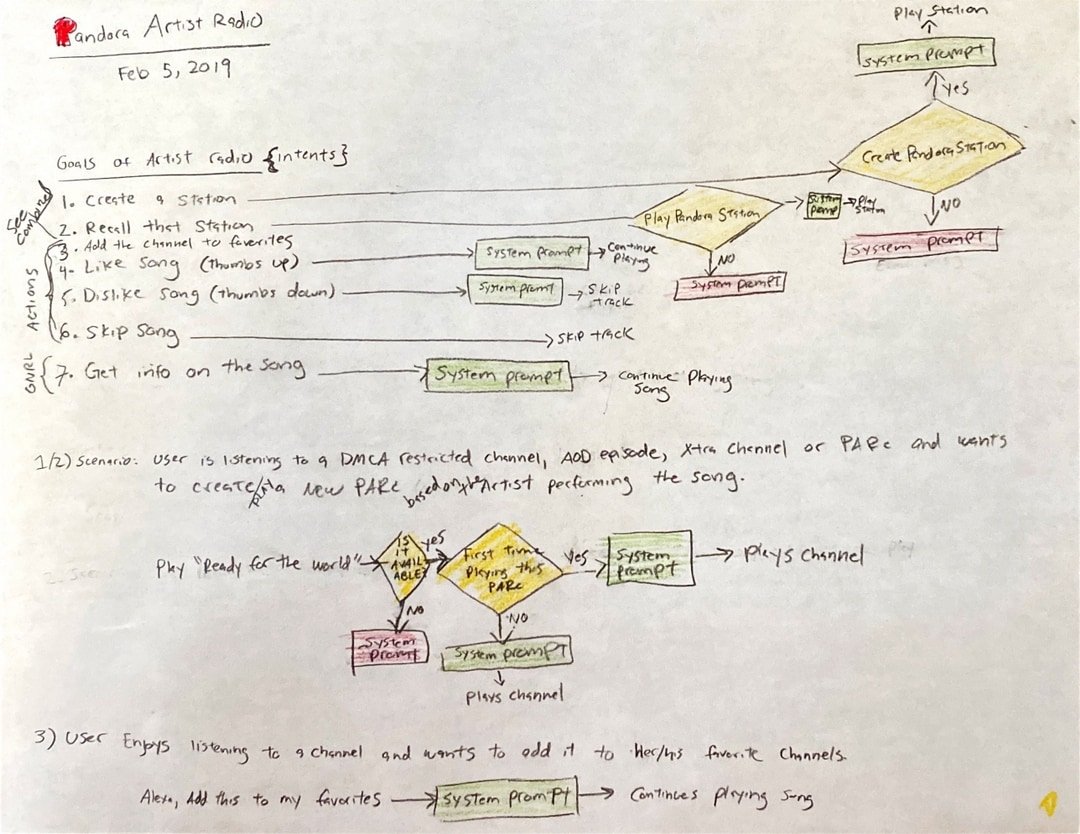 Pandora Artist Radio
Feb 5, 2019
Play Station
System prompt
yes
Create Pandora Station
NO
System prompt
Goals of Artist radio {intents}
See Combined
1. Create a Station
2. Recall that Station
Play Pandora Station
System prompt
Play Station
NO
System prompt
Actions
3. Add the channel to favorites
4. Like Song (thumbs up)
System prompt
Continue Playing
5. Dislike Song (thumbs down)
System prompt
Skip track
6. Skip Song
Skip track
GNRL
7. Get info on the song
System prompt
Continue Playing Song
1/2) Scenario: User is listening to a DMCA restricted channel, AOD episode, Xtra Channel or PARc and wants
to create/play a new PARc based on the Artist performing the song.
Play "Ready for the world"
IS IT AVAILABLE?
yes
First time playing this PARc
Yes
System prompt
Plays channel
NO
System prompt
NO
System prompt
Plays channel
3) User Enjoys listening to a channel and wants to add it to Her/his favorite Channels.
Alexa, Add this to my favorites
System prompt
Continues playing Song